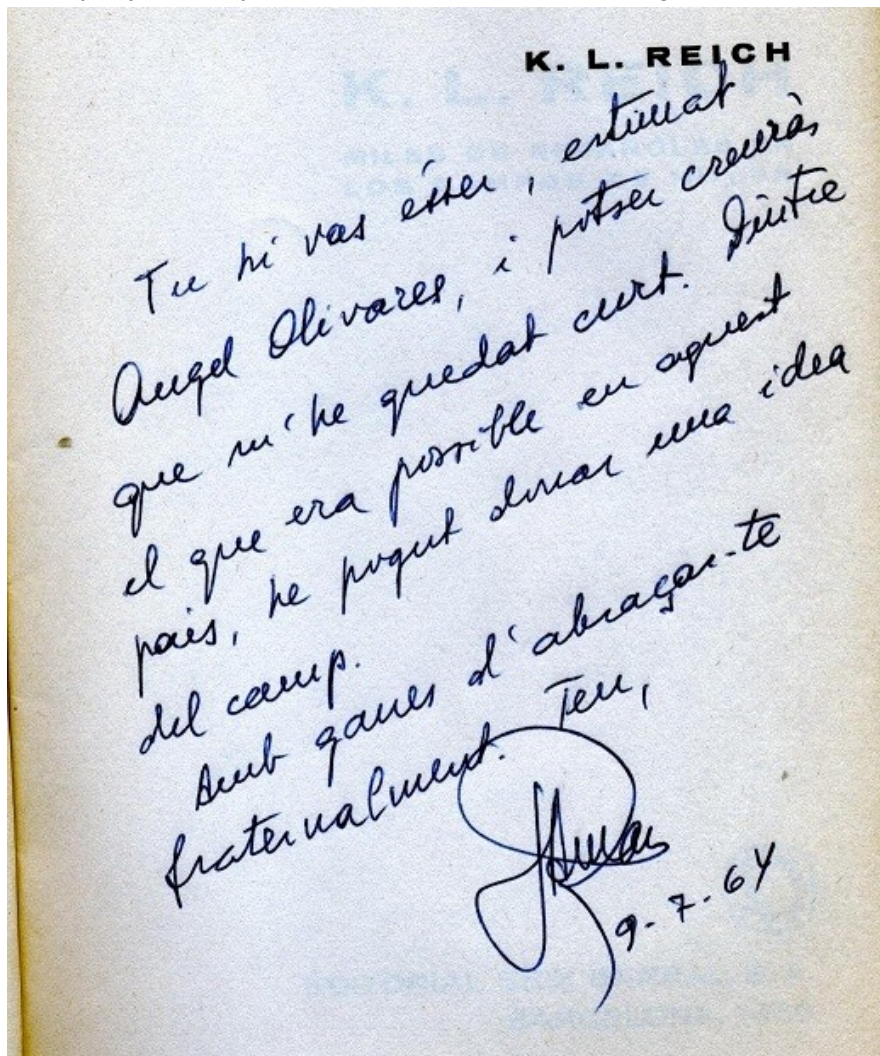 K. L. REICH
Tu hi vas ésser, estimat
Angel Olivares, i potser creuràs
que m'he quedat curt. Dintre
el que era possible en aquest
país, he pogut donar una idea
del camp.
Amb ganes d'abraçar-te
fraternalment. Teu,
9-7-64